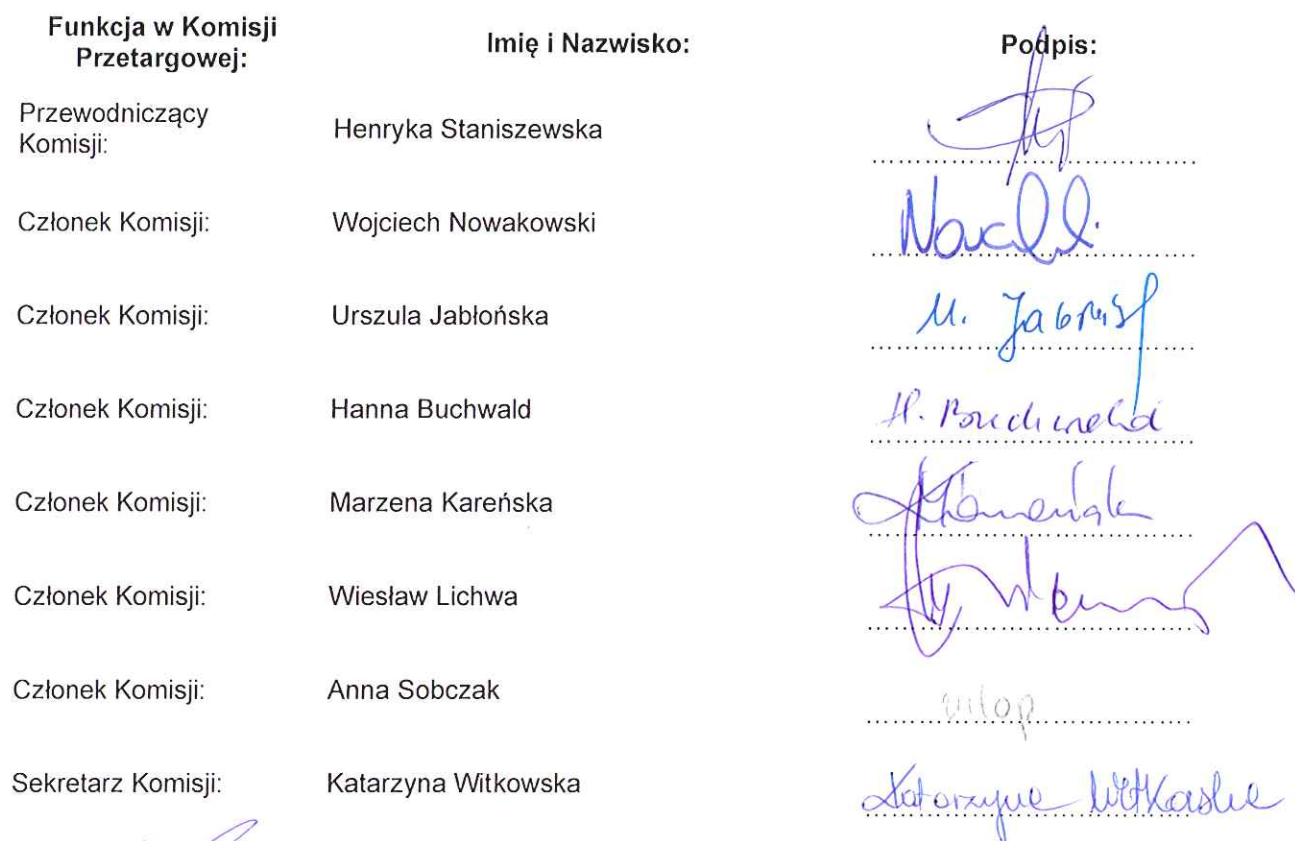 Funkcja w Komisji Przetargowej: Imię i Nazwisko: Podpis:
Przewodniczący Komisji: Henryka Staniszewska
Członek Komisji: Wojciech Nowakowski
Członek Komisji: Urszula Jabłońska
Członek Komisji: Hanna Buchwald H. Buchwald
Członek Komisji: Marzena Kareńska
Członek Komisji: Wiesław Lichwa
Członek Komisji: Anna Sobczak urlop
Sekretarz Komisji: Katarzyna Witkowska Katarzyna Witkowska